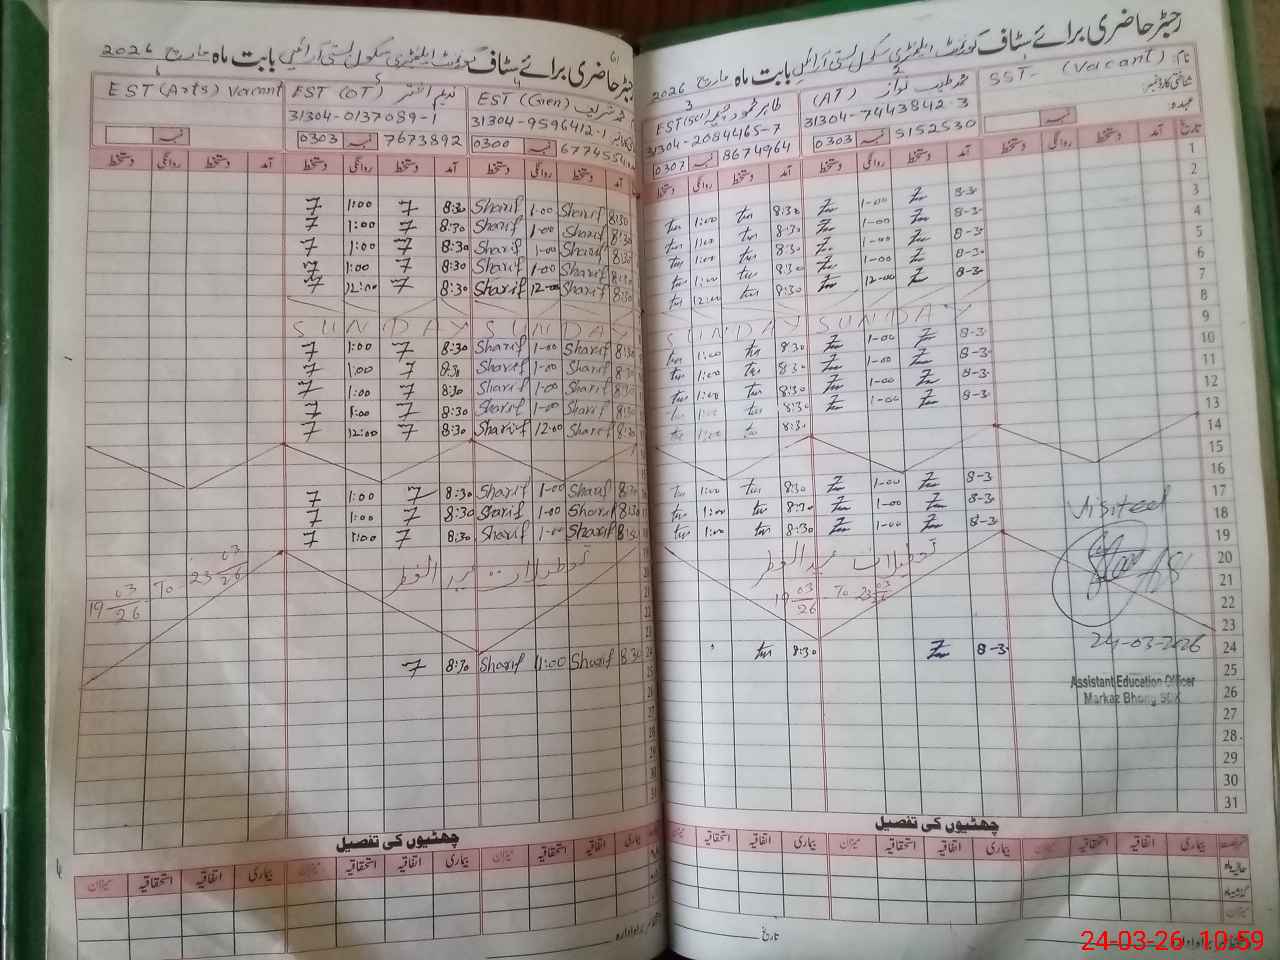 رجسٹر حاضری برائے سٹاف گورنمنٹ ایلیمنٹری سکول بستی آرائیں بابت ماہ مارچ 2026
نام SST- (Vacant)
شناختی کارڈ نمبر
عہدہ
محمد طیب نواز (AT)
31304-7443842-3
0303 5152530
3
طاہر محمود
31304-2084465-7
0307 8674964
تاریخ آمد دستخط روانگی دستخط آمد دستخط روانگی دستخط آمد دستخط روانگی دستخط
1
2
3 8-3 1-00 8:30 1:00
4 8-3 1-00 8:30 1:00
5 8-3 1-00 8:30 1:00
6 8-3 1-00 8:30 1:00
7 8-3 12-00 8:30 12:00
8 SUNDAY SUNDAY
9 8-3 1-00 8:30 1:00
10 8-3 1-00 8:30 1:00
11 8-3 1-00 8:30 1:00
12 8-3 1-00 8:30 1:00
13 8:30 1:00
14
15
16 8-3 1-00 8:30 1:00
17 8-3 1-00 8:30 1:00
18 8-3 1-00 8:30 1:00
19
20 تعطیلات عید الفطر
21 19 03/26 To 23 03/26
22
23
24 8-3 8:30
25
26
27
28
29
30
31
Visited
24-03-2026
Assistant Education Officer
Markaz Bhong SDK
چھٹیوں کی تفصیل
بیماری اتفاقیہ استحقاقیہ میزان بیماری اتفاقیہ استحقاقیہ میزان بیماری اتفاقیہ استحقاقیہ
میزان
تاریخ
رجسٹر حاضری برائے سٹاف گورنمنٹ ایلیمنٹری سکول بستی آرائیں بابت ماہ مارچ 2026
محمد شریف EST (Gen)
31304-9596412-1
0300
ندیم اختر EST (OT)
31304-0137089-1
0303 7673892
EST (Arts) Vacant
آمد دستخط روانگی دستخط آمد دستخط روانگی دستخط دستخط روانگی دستخط
8:30 Sharif 1-00 Sharif 8:30 7 1:00 7
8:30 Sharif 1-00 Sharif 8:30 7 1:00 7
8:30 Sharif 1-00 Sharif 8:30 7 1:00 7
8:30 Sharif 1-00 Sharif 8:30 7 1:00 7
8:30 Sharif 12-00 Sharif 8:30 7 12:00 7
SUNDAY SUNDAY
8:30 Sharif 1-00 Sharif 8:30 7 1:00 7
8:30 Sharif 1-00 Sharif 8:30 7 1:00 7
8:30 Sharif 1-00 Sharif 8:30 7 1:00 7
8:30 Sharif 1-00 Sharif 8:30 7 1:00 7
8:30 Sharif 12:00 Sharif 8:30 7 12:00 7
8:30 Sharif 1-00 Sharif 8:30 7 1:00 7
8:30 Sharif 1-00 Sharif 8:30 7 1:00 7
8:30 Sharif 1-00 Sharif 8:30 7 1:00 7
تعطیلات عید الفطر
19 03/26 To 23 03/26
8:30 Sharif 11:00 Sharif 8:30 7
چھٹیوں کی تفصیل
بیماری اتفاقیہ استحقاقیہ میزان بیماری اتفاقیہ استحقاقیہ میزان بیماری اتفاقیہ استحقاقیہ میزان
24-03-26 10:59